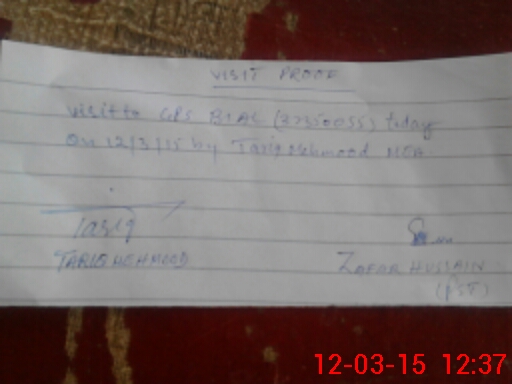 VISIT PROOF
Visit to GPS (27350055) today
On 12/3/15 by Tariq Mehmood MEA
Tariq
TARIQ MEHMOOD
ZAFAR HUSSAIN
(PST)
12-03-15 12:37